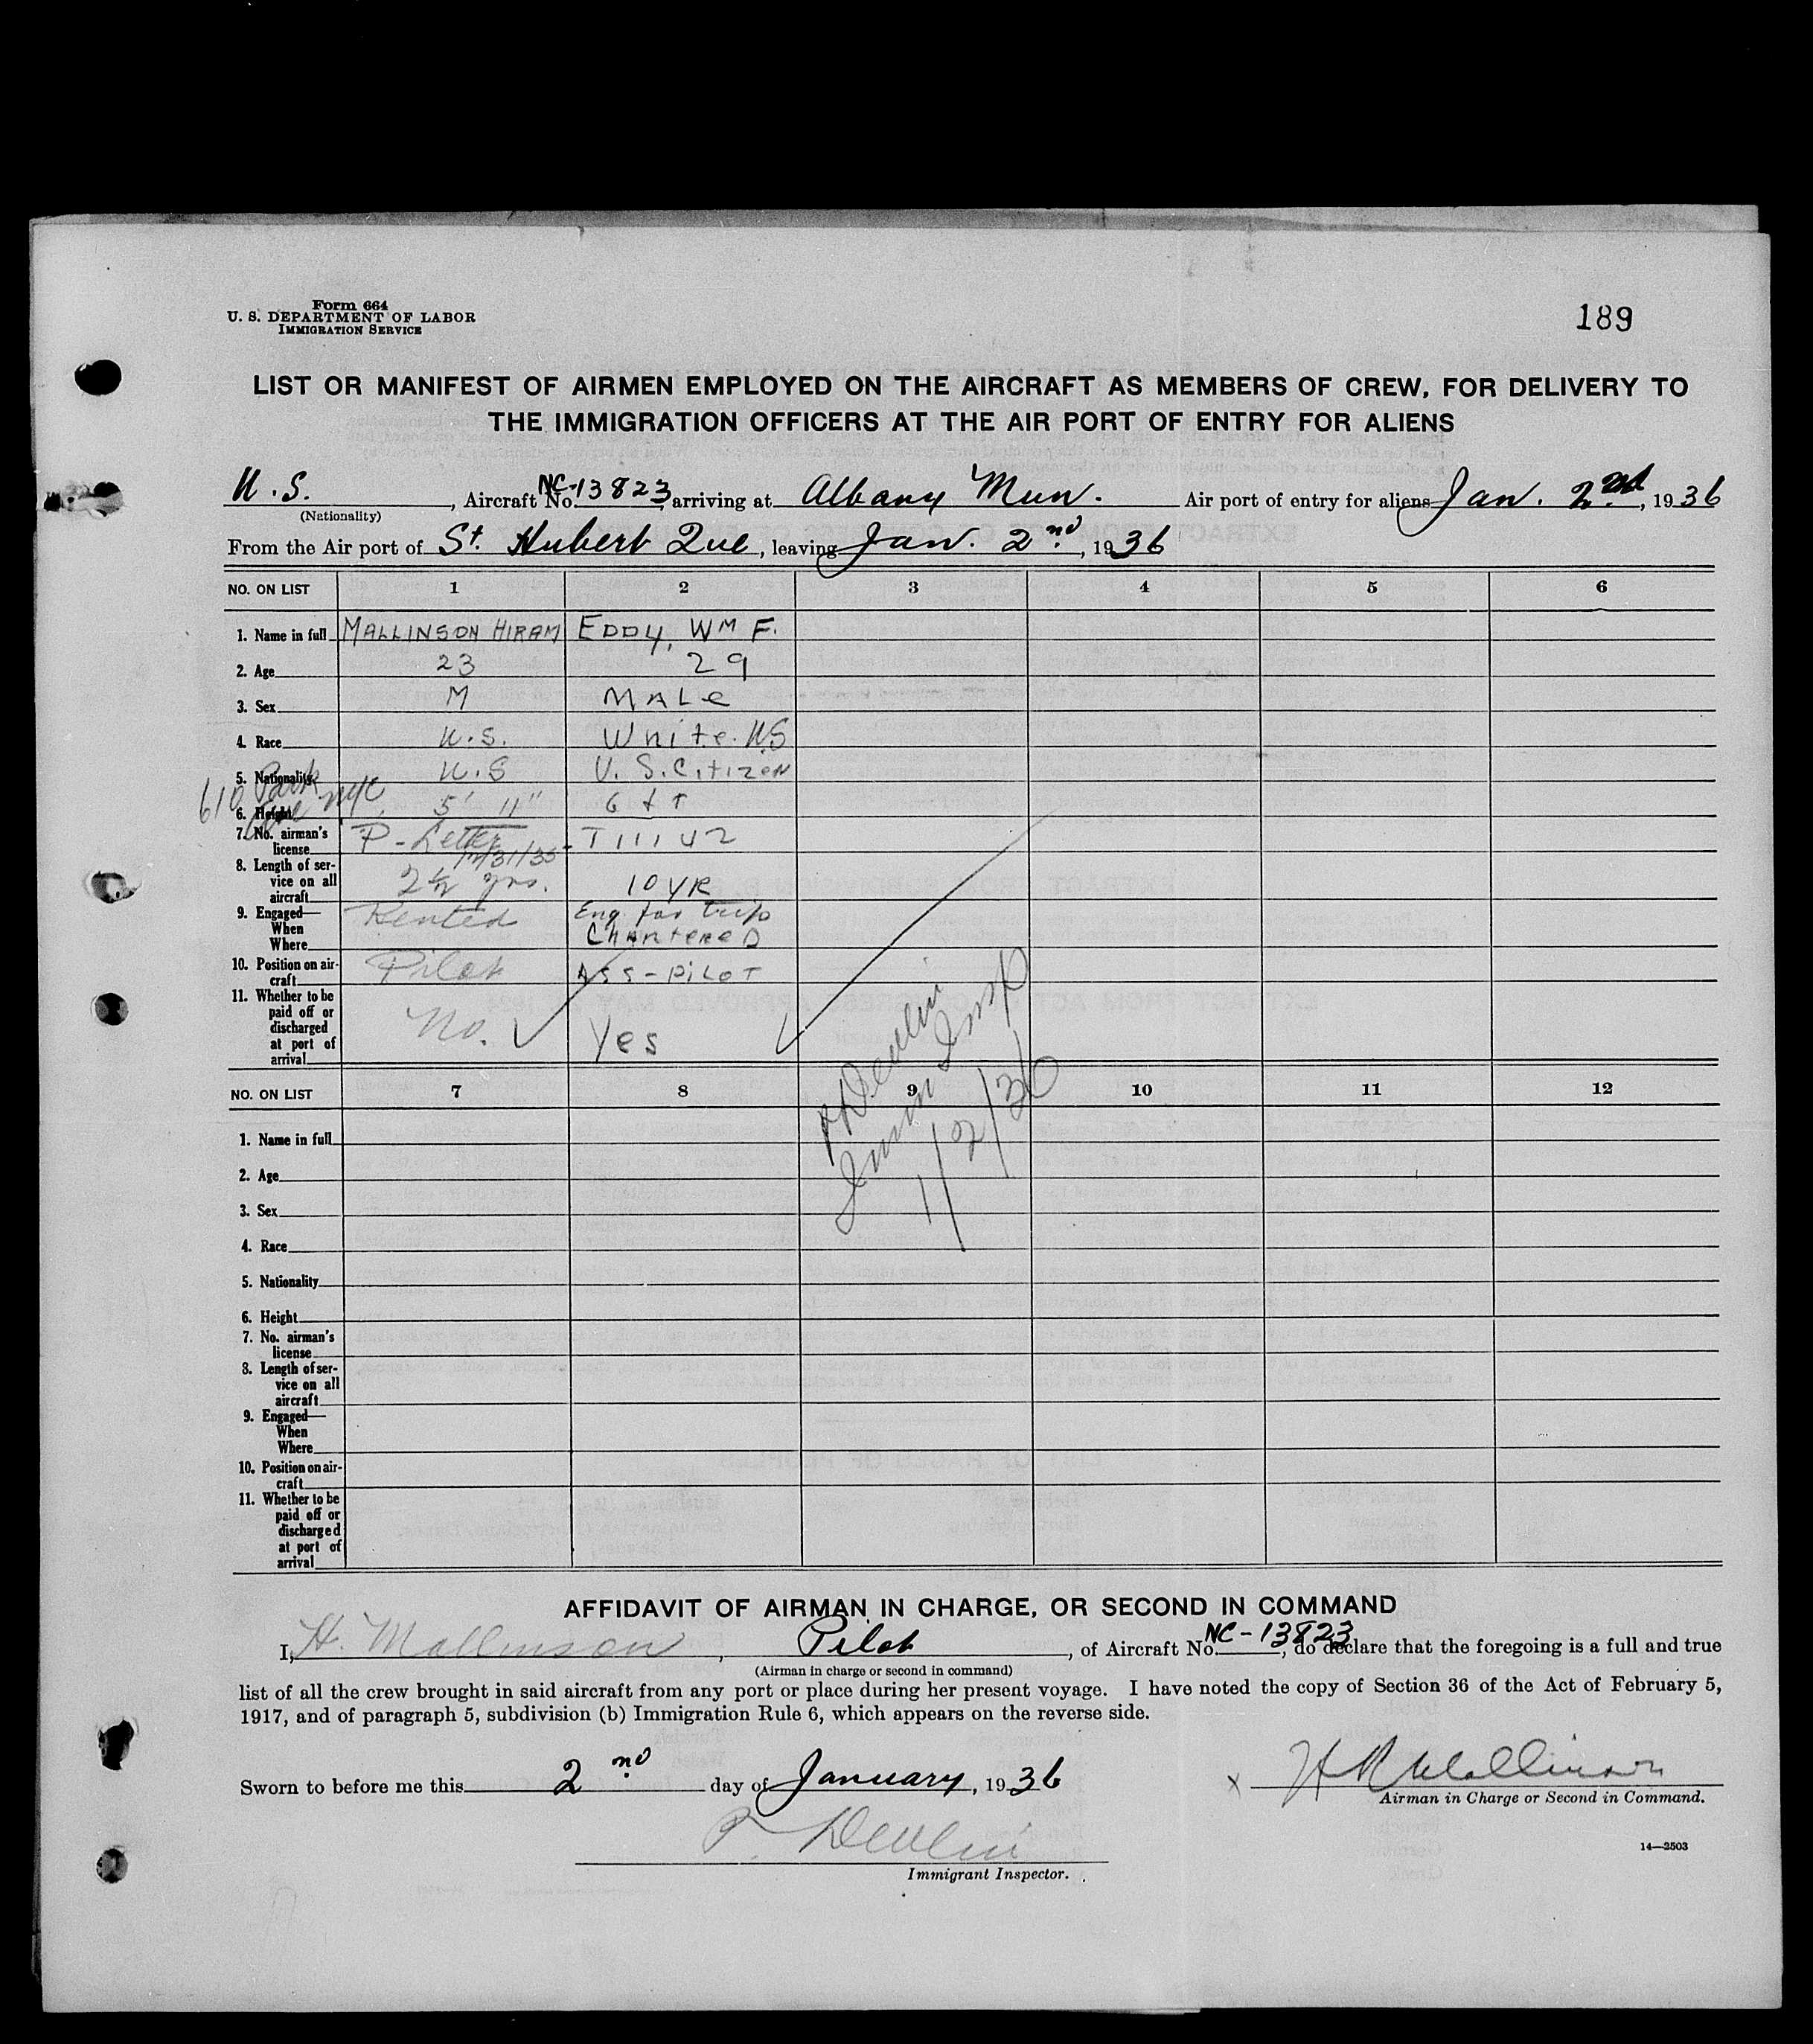 Form 664
U. S. DEPARTMENT OF LABOR
IMMIGRATION SERVICE
189
LIST OR MANIFEST OF AIRMEN EMPLOYED ON THE AIRCRAFT AS MEMBERS OF CREW, FOR DELIVERY TO
THE IMMIGRATION OFFICERS AT THE AIR PORT OF ENTRY FOR ALIENS
U.S., Aircraft No. NC-13823, arriving at Albany Mun. Air port of entry for aliens Jan. 2nd, 1936
(Nationality)
From the Air port of St. Hubert Que, leaving Jan. 2nd, 1936
NO. ON LIST 1 2 3 4 5 6
1. Name in full MALLINSON HIRAM EDDY, WM F.
2. Age 23 29
3. Sex M MALE
4. Race U.S. White. US
5. Nationality U.S U. S. Citizen
610 Park
Ave NYC
6. Height 5' 11" 6 ft
7. No. airman's
license P-Letter 12/31/35 T 11142
8. Length of ser-
vice on all
aircraft 2 1/2 yrs. 10 YR
9. Engaged—
When
Where Rented Eng. for trip
CHARTERED
10. Position on air-
craft Pilot ASS-PILOT
11. Whether to be
paid off or
discharged
at port of
arrival No. Yes
P Devlin
Immi Insp
1/2/36
NO. ON LIST 7 8 9 10 11 12
1. Name in full
2. Age
3. Sex
4. Race
5. Nationality
6. Height
7. No. airman's
license
8. Length of ser-
vice on all
aircraft
9. Engaged—
When
Where
10. Position on air-
craft
11. Whether to be
paid off or
discharged
at port of
arrival
AFFIDAVIT OF AIRMAN IN CHARGE, OR SECOND IN COMMAND
I, H. Mallinson, Pilot, of Aircraft No. NC-13823, do declare that the foregoing is a full and true
(Airman in charge or second in command)
list of all the crew brought in said aircraft from any port or place during her present voyage. I have noted the copy of Section 36 of the Act of February 5,
1917, and of paragraph 5, subdivision (b) Immigration Rule 6, which appears on the reverse side.
Sworn to before me this 2nd day of January, 1936
x H R Mallinson
Airman in Charge or Second in Command.
P. Devlin
Immigrant Inspector.
14—2503